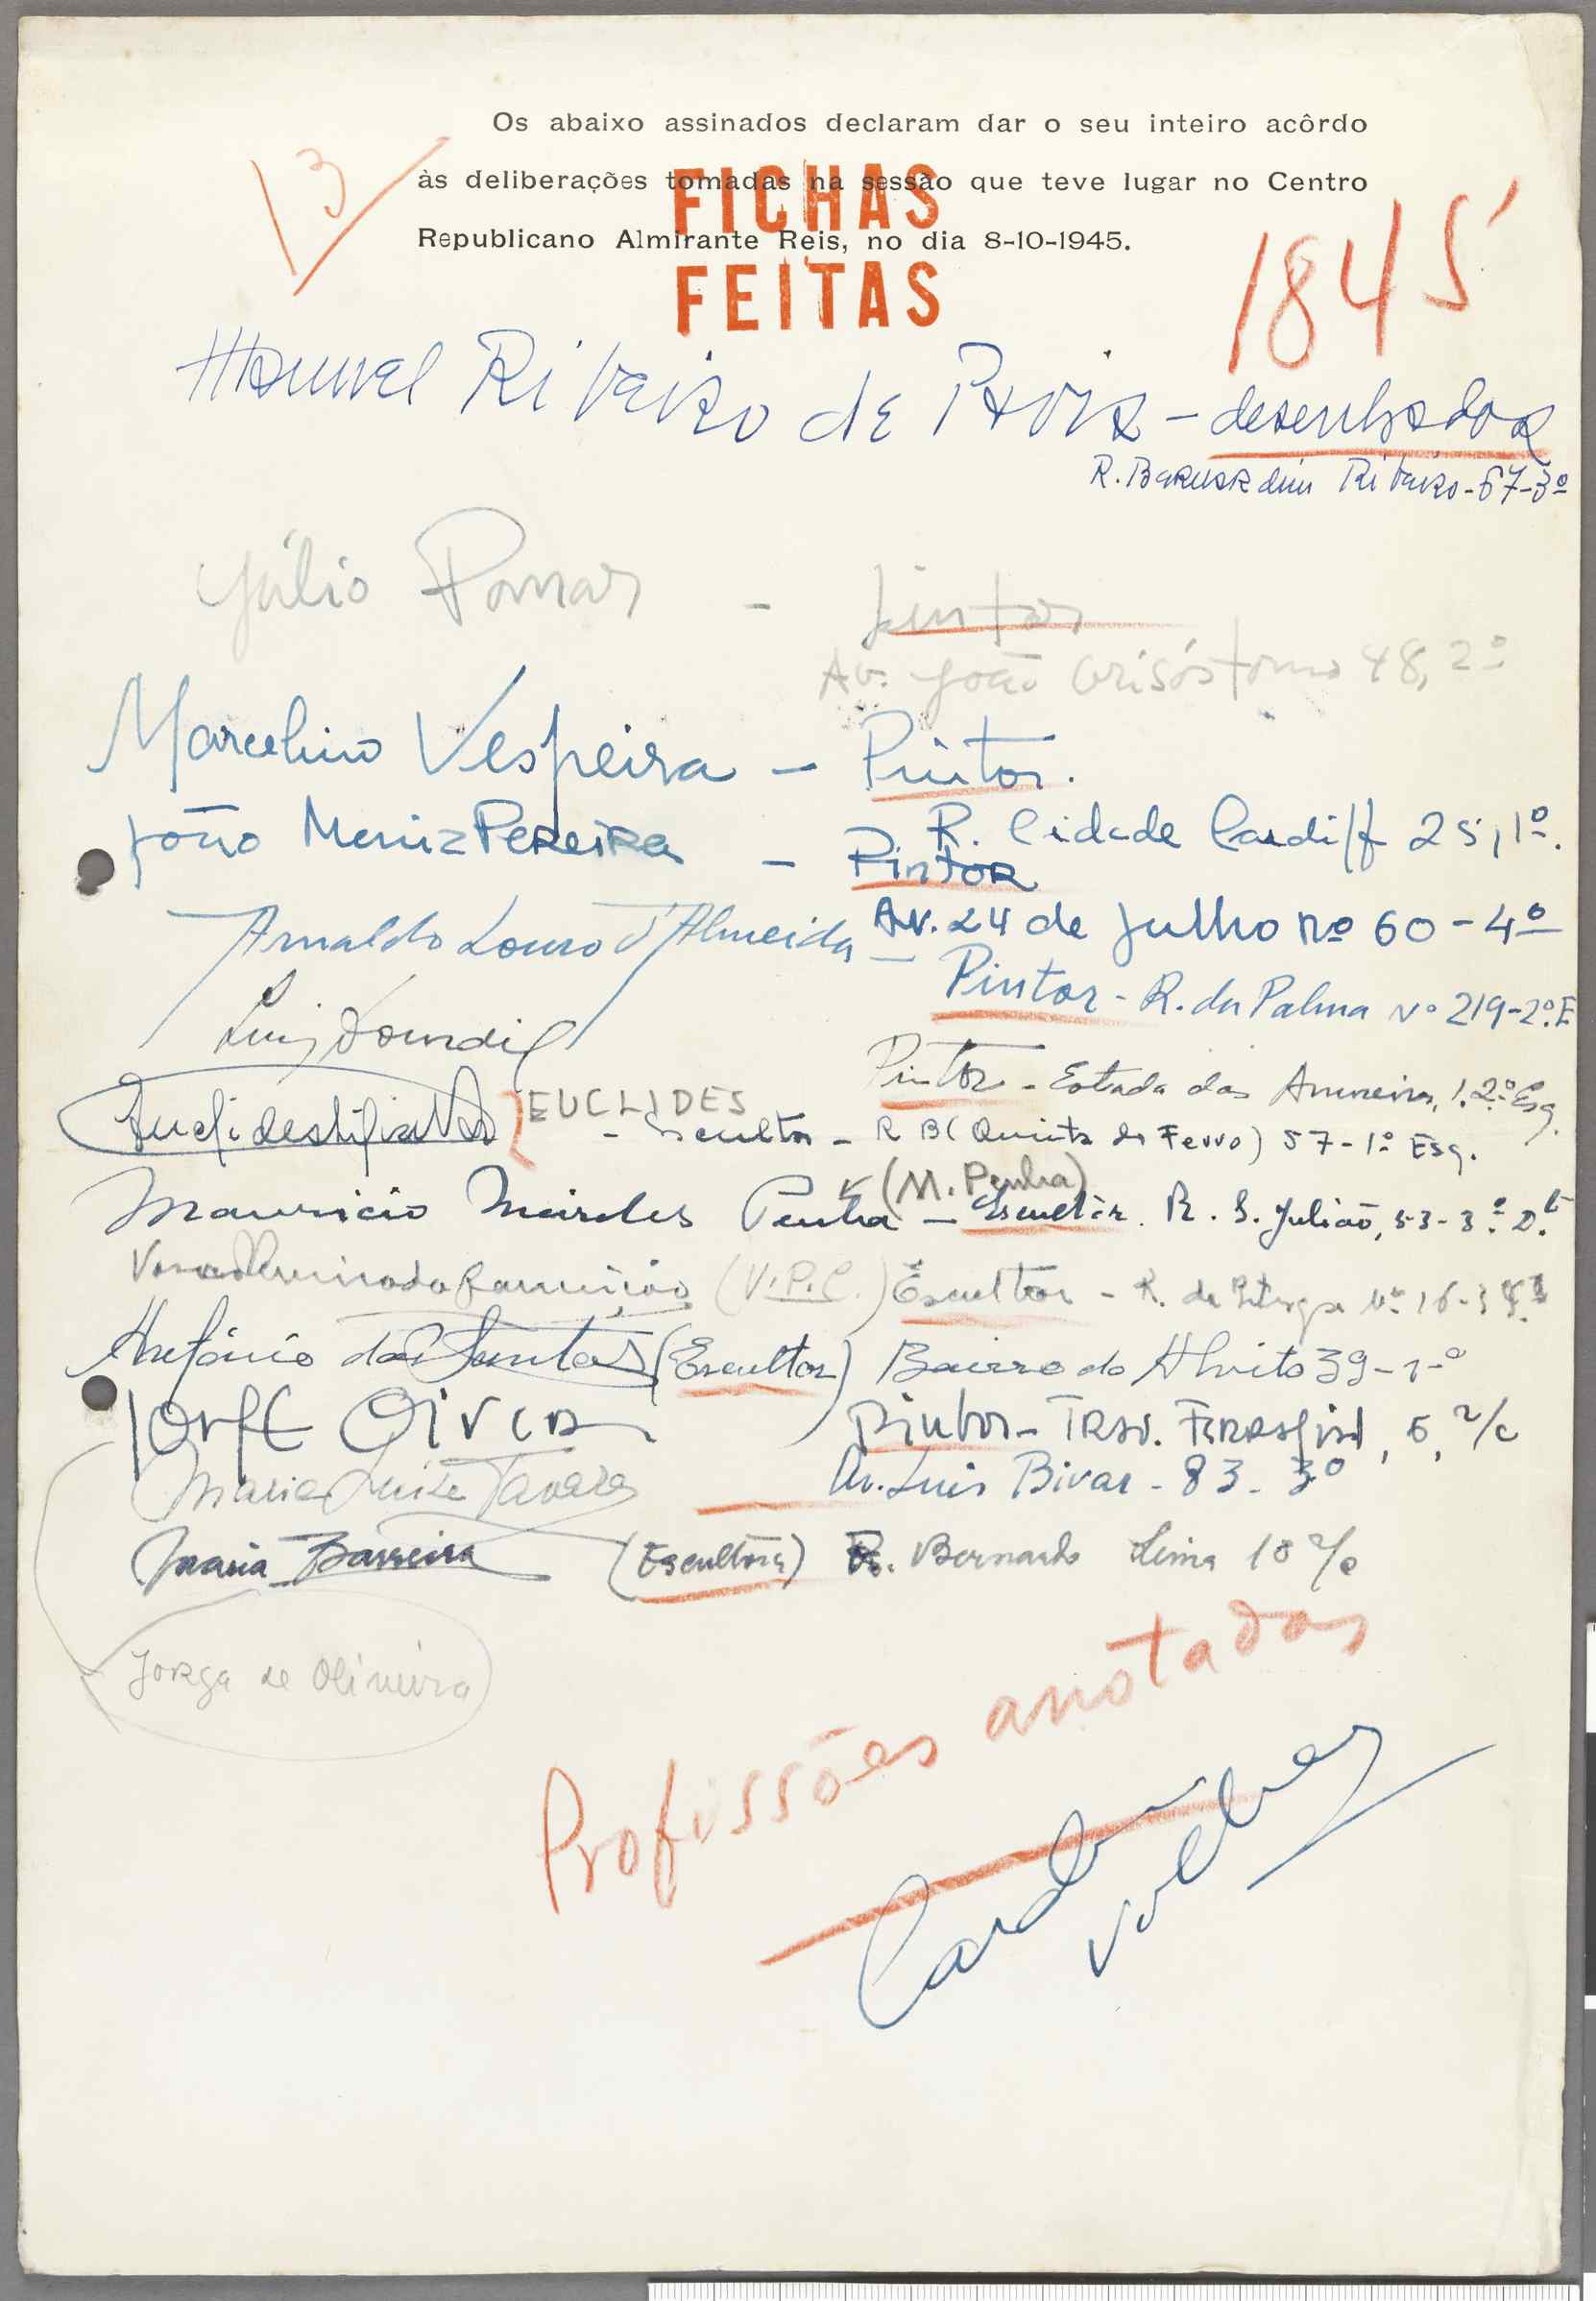 Os abaixo assinados declaram dar o seu inteiro acôrdo
às deliberações tomadas na sessão que teve lugar no Centro
Republicano Almirante Reis, no dia 8-10-1945.
13
FICHAS
FEITAS
1845
Manuel Ribeiro de Pavia - desenhador
R. Bernardim Ribeiro - 67-3º
Júlio Pomar - pintor
Av. João Crisóstomo 48, 2º
Marcelino Vespeira - Pintor.
R. Cidade Cardiff 25, 1º.
João Moniz Pereira - Pintor
Av. 24 de Julho nº 60 - 4º
Arnaldo Louro d'Almeida -
Pintor - R. da Palma Nº 219-2º. E
Luiz
Pintor - Estrada das 1. 2º Esq.
Euclides EUCLIDES
- Escultor - R B (Quinta do Ferro) 57-1º Esq.
(M. Penha)
Mauricio Meireles Penha - Escultor. R. S. Julião, 53-3º. D.to
Vasco da Conceição (V.P.C.) Escultor - R. da Nº 16-3
António dos Santos (Escultor) Bairro do Alvito 39-1-º
Jorge Oliveira Pintor - Trav. 6, r/c
Maria Luiza Tavares Av. Luis Bivar - 83 - 3º
Maria Barreira (Escultora) R. Bernardo Lima 10 r/c
Jorge de Oliveira
Profissões anotadas